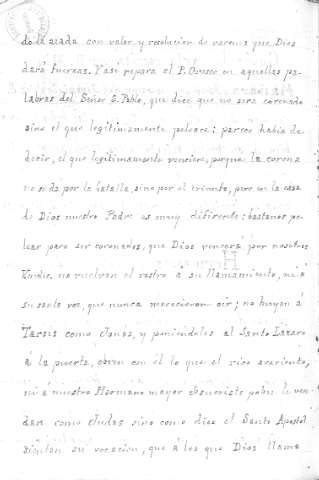 do la azada con valor y resolución de varones que Dios
dará fuerzas. Y así repara el P. Orozco en aquellas pa-
labras del Señor S. Pablo, que dice que no será coronado
sino el que legítimamente peleare: parece había de
decir, el que legítimamente venciere, porque la corona
no se da por la batalla, sino por el triunfo, pero en la casa
de Dios nuestro Padre es muy diferente: bástanos pe-
lear para ser coronados, que Dios vencerá por nosotros
no vuelvan el rostro á su llamamiento, ni á
su santa voz, que nunca merecieron oir; no huyan á
Tarsis como Jonás, y poniéndoles al Santo Lázaro
á la puerta, obren con él lo que el rico avariento,
ni á nuestro Hermano mayor Jesucristo pobre le ven-
dan como Judas sino como dice el Santo Apostol
su vocacion, que á los que Dios llama